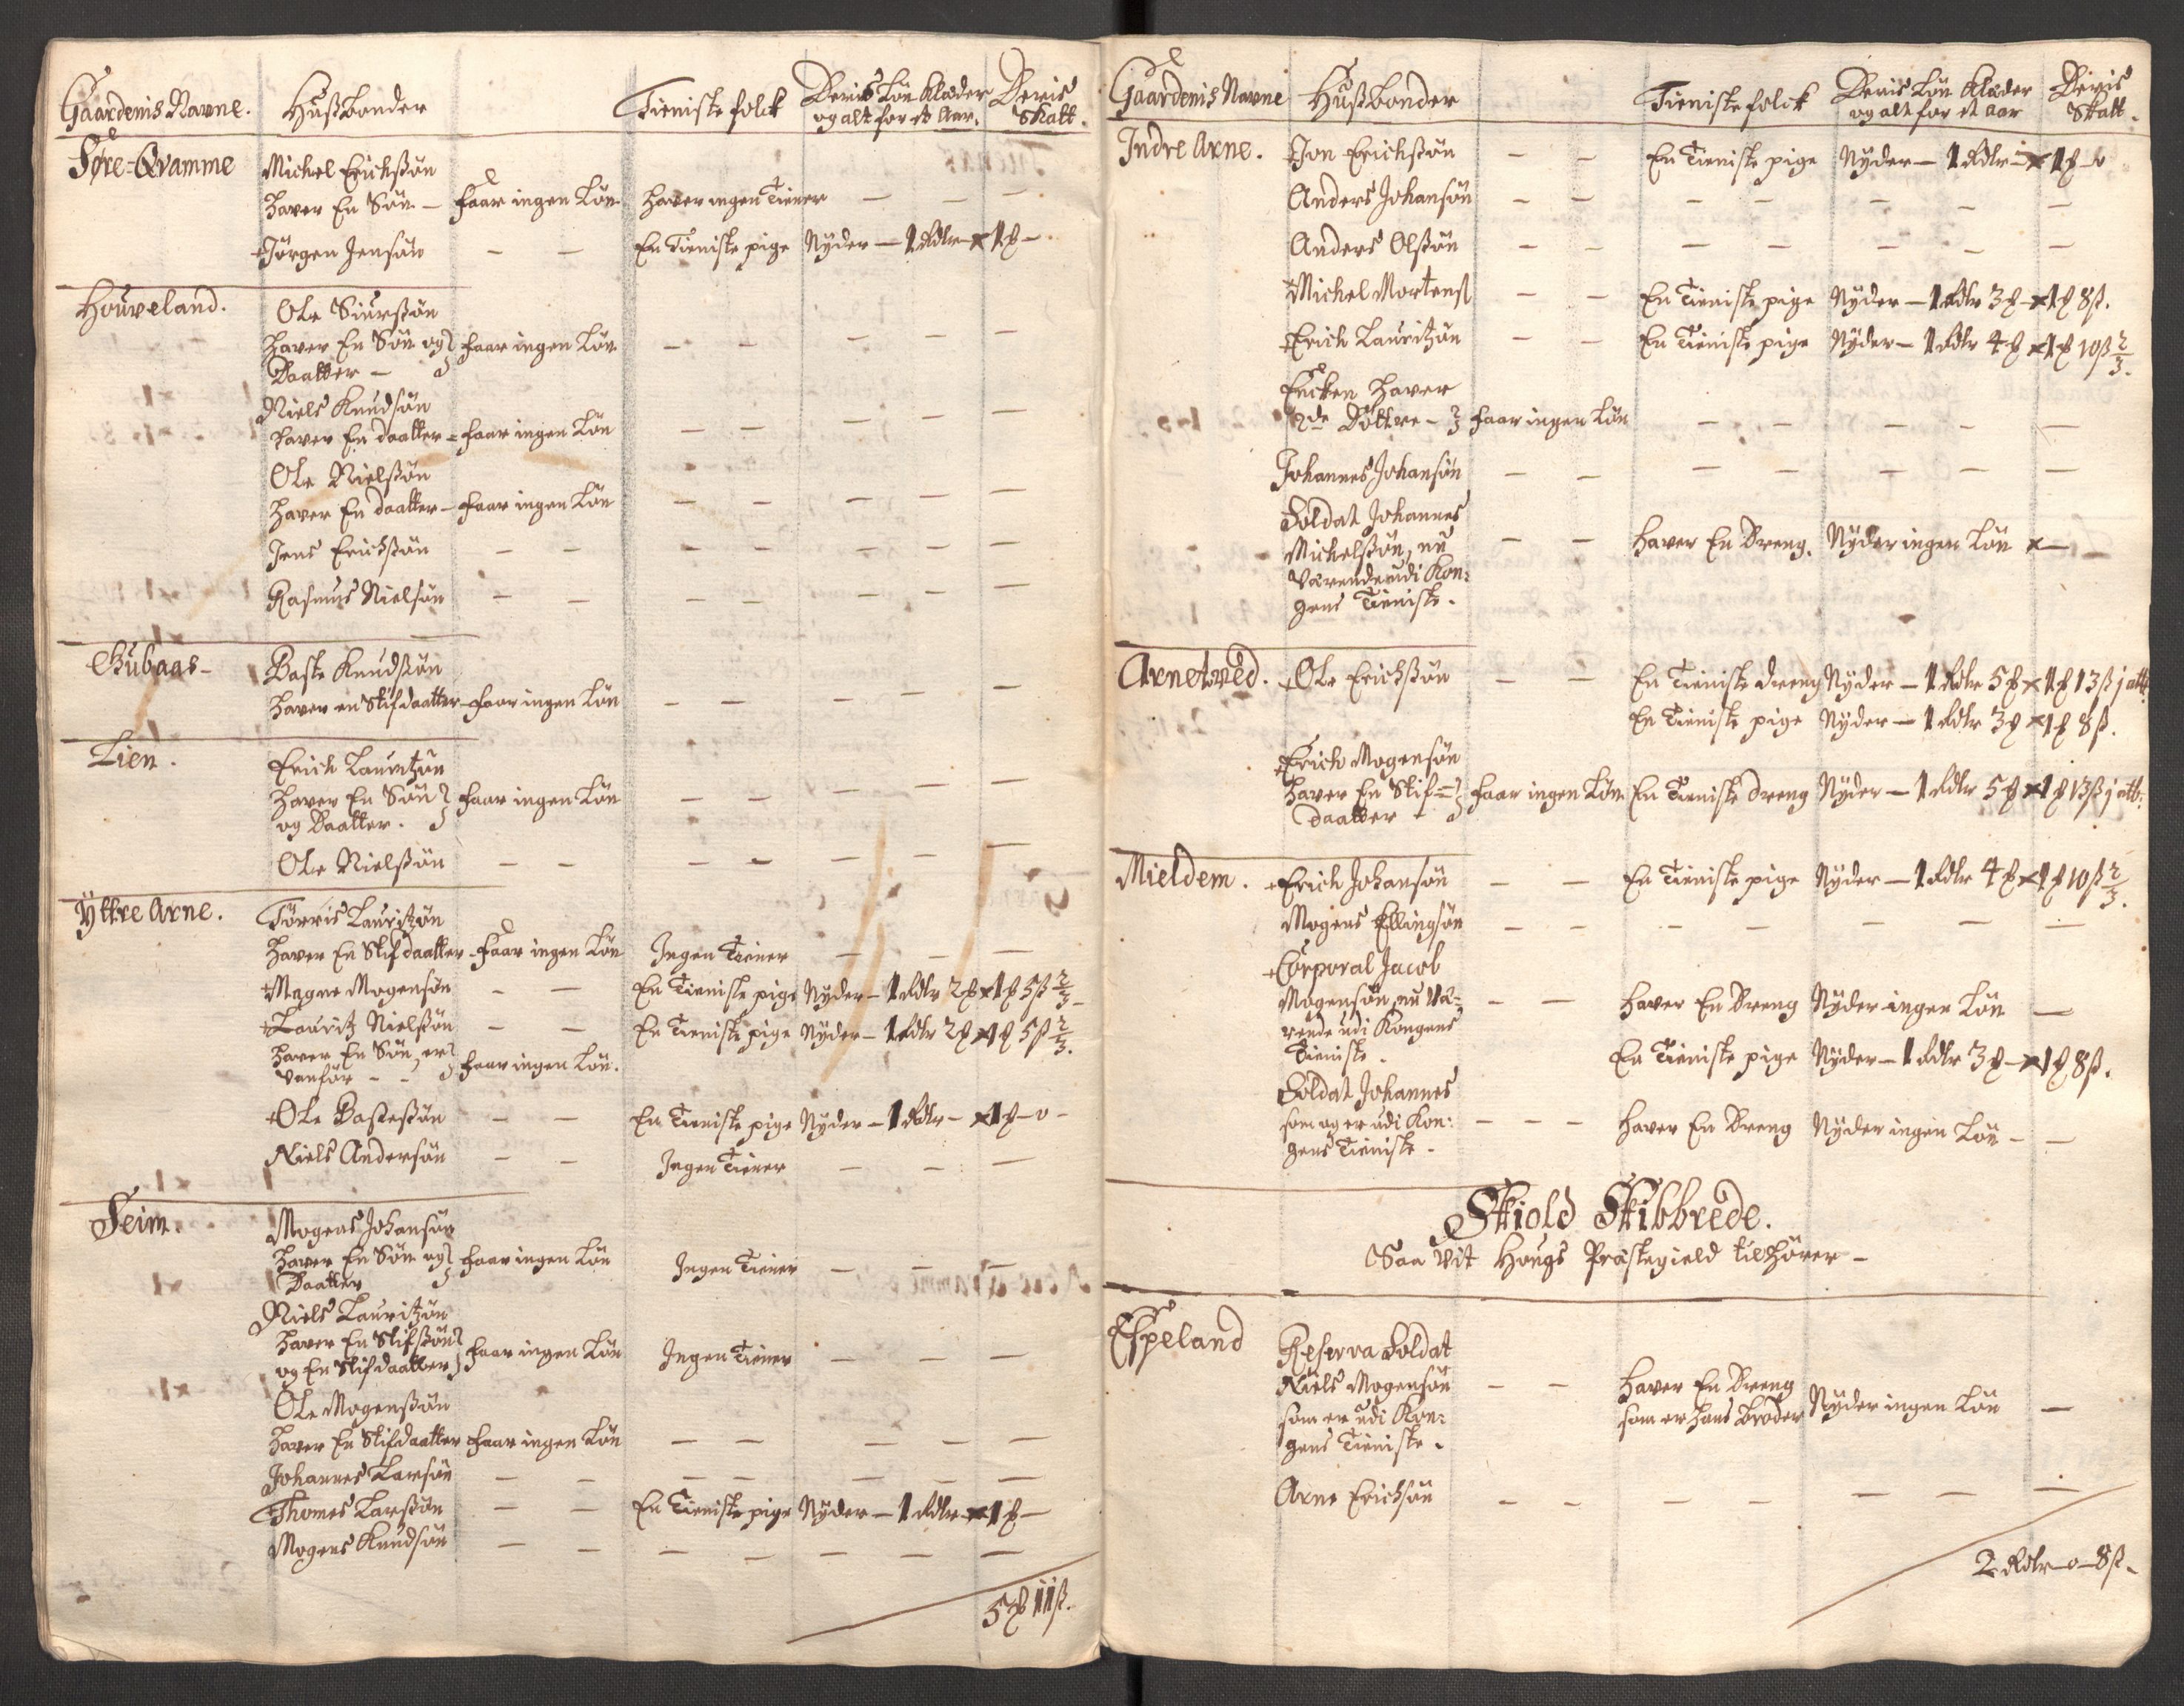 Gaardenis Navne. Hussbonder Tieniste folck Deris Løn Klæder og alt for et Aar. Deris Skatt.
Søre-Qvamme Michel Erichssøn
haver En Søn - faar ingen Løn haver ingen Tiener — — —
+Jørgen Jensøn — — En Tieniste pige Nyder — 1 Rdlr — x 1 ß —
Houveland. Ole Siurssøn
haver En Søn og faar ingen Løn — — — — —
Daatter —
Niels Knudsøn
haver En daatter = faar ingen Løn — — — — —
Ole Nielssøn
haver En daatter — faar ingen Løn — — — — —
Jens Erichssøn — — — — — — —
Rasmus Nielsøn — — — — — — —
Gubaas - Baste Knudssøn
haver en Stifdaatter - faar ingen Løn — — — — —
Lien. Erich Lauritzøn
haver En Søn faar ingen Løn — — — — —
og Daatter.
Ole Nielssøn — — — — — — —
Yttre Arne. Tørris Lauritzøn
haver En Stifdaatter - faar ingen Løn Ingen Tiener — — —
+Magne Mogensøn — — En Tieniste pige Nyder — 1 Rdlr 2 ß x 1 ß 5 ß 2/3 -
+Lauritz Nielssøn — — En Tieniste pige Nyder — 1 Rdlr 2 ß x 1 ß 5 ß 2/3.
haver En Søn, er
Vanfør - - faar ingen Løn.
+Ole Bastessøn — — En Tieniste pige Nyder — 1 Rdlr — x 1 ß — 0 -
Niels Andersøn — — Ingen Tiener — — —
Seim. Mogens Johansøn
haver En Søn og faar ingen Løn Ingen Tiener — — —
Daatter
Niels Lauritzøn
haver En Stifssøn faar ingen Løn Ingen Tiener — — —
og En Stifdaatter
Ole Mogenssøn
haver En Stifdaatter faar ingen Løn — — — — —
Johannes Larsøn — — — — — — —
Thomes Larssøn — — En Tieniste pige Nyder — 1 Rdlr — x 1 ß —
Mogens Knudsøn — — — — — — —
5 ß 11 ß.
Gaardenis Navne Hussbonder Tieniste folck Deris Løn Klæder og alt for et aar Deris Skatt.
Indre Arne. +Jon Erichssøn — — En Tieniste pige Nyder — 1 Rdlr — x 1 ß — 0
Anders Johansøn — — — — — — —
Anders Olssøn — — — — — — —
+Michel Mortens — — En Tieniste pige Nyder — 1 Rdlr 3 ß — x 1 ß 8 ß.
+Erich Lauritzøn — — En Tieniste pige Nyder — 1 Rdlr 4 ß x 1 ß 10 ß 2/3.
Encken haver
2de Døttre - faar ingen Løn — — — — —
Johannes Johansøn — — — — — — —
Soldat Johannes
Michelssøn, nu — — haver En Dreng. Nyder ingen Løn x —
Værende udi Kon:
gens Tieniste.
Arnetved. +Ole Erichssøn — — En Tieniste dreng Nyder — 1 Rdlr 5 ß x 1 ß 13 ß j alb
En Tieniste pige Nyder — 1 Rdlr 3 ß x 1 ß 8 ß.
+Erich Mogensøn
haver En Stif= faar ingen Løn En Tieniste dreng Nyder — 1 Rdlr 5 ß x 1 ß 13 ß j alb:
daatter -
Mieldem. +Erich Johansøn — — En Tieniste pige Nyder — 1 Rdlr 4 ß x 1 ß 10 ß 2/3.
Mogens Ellingsøn — — — — — — —
+Corporal Jacob
Mogensøn, nu Væ= — — haver En Dreng Nyder ingen Løn —
rende udi Kongens
Tieniste. En Tieniste pige Nyder — 1 Rdlr 3 ß — x 1 ß 8 ß.
Soldat Johannes
som og er udi Kon: — — — haver En Dreng Nyder ingen Løn - —
gens Tieniste.
Skiold Skibbrede.
Saa vit Hougs Præstegield tilhører —
Espeland Reserva Soldat
Niels Mogensøn — — haver En Dreng
som er udi Kon: som er hans broder Nyder ingen Løn —
gens Tieniste.
Arne Erichsøn — — — — — — —
2 Rdlr — 0 — 8 ß.